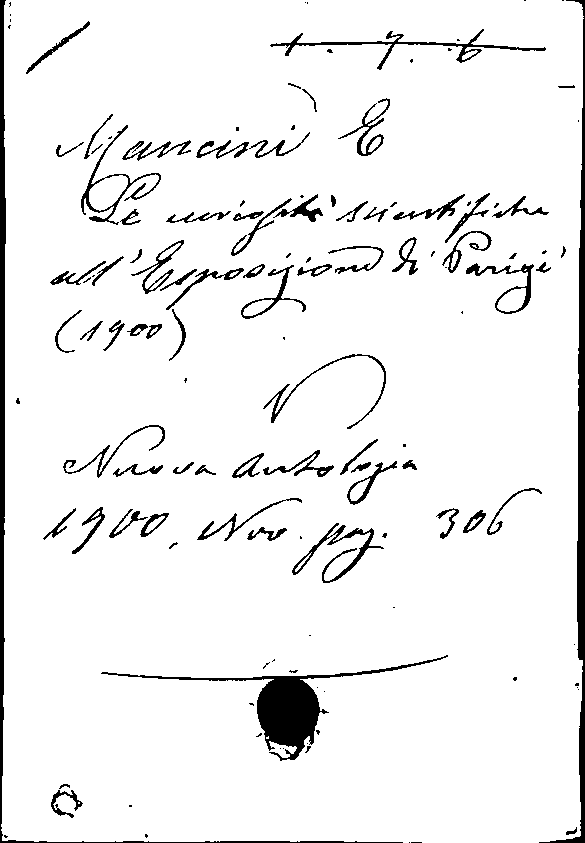 1. 7. 6
Mancini E
Le curiosità scientifiche
all'Esposizione di Parigi
(1900)
N
Nuova Antologia
1900, Nov. pag. 306